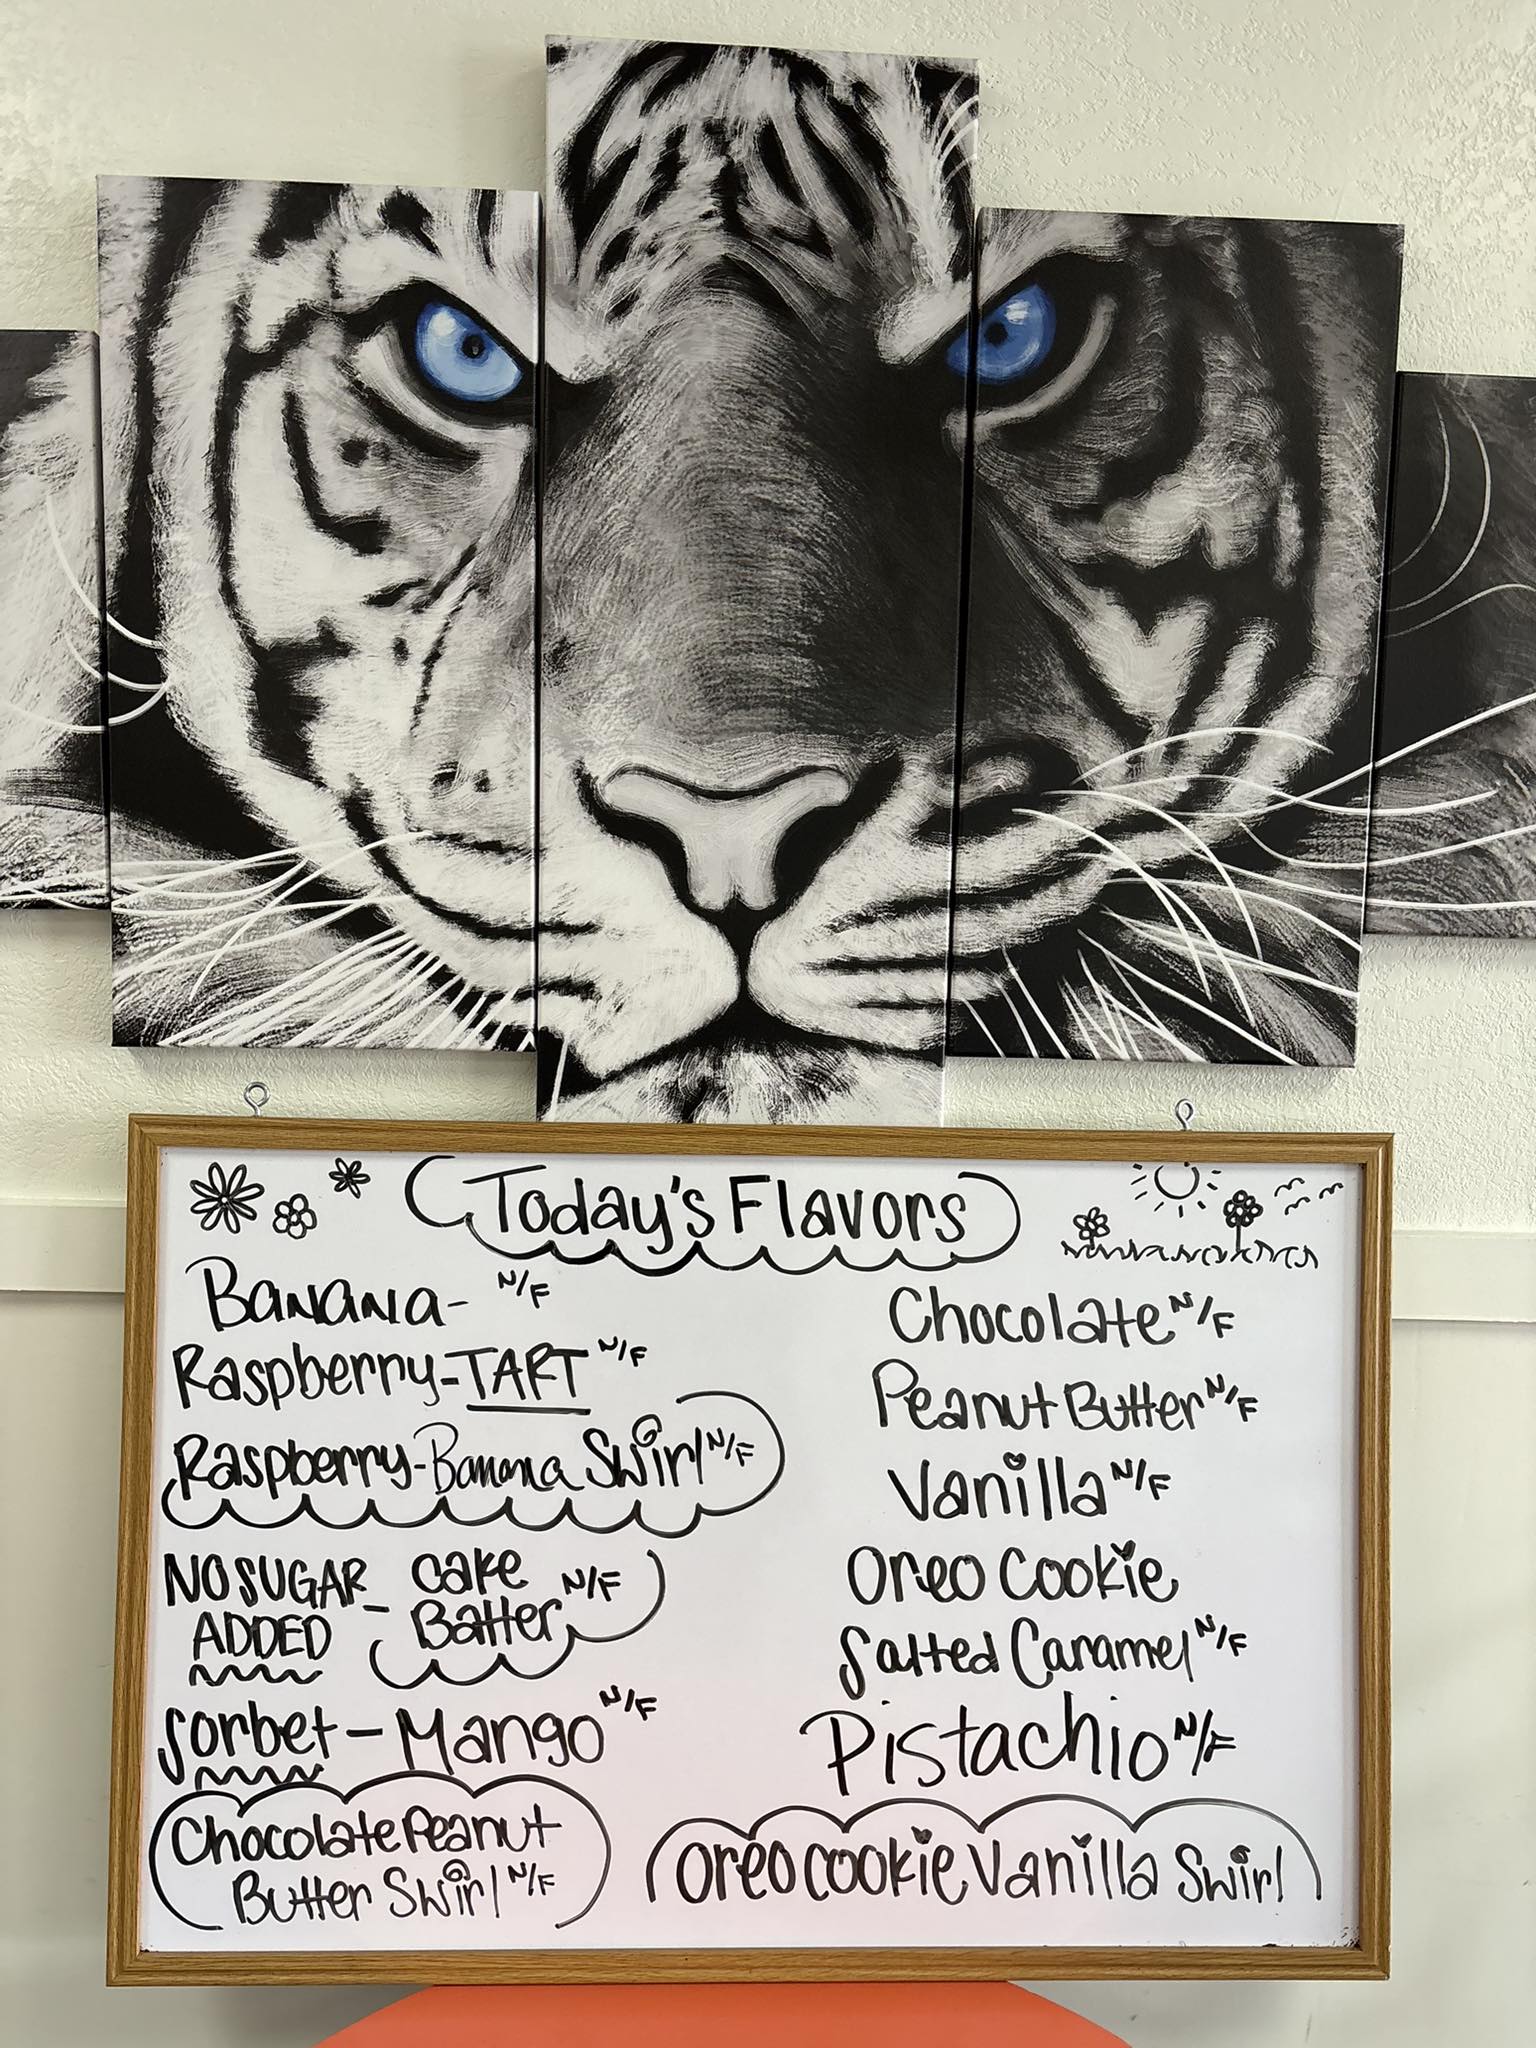 Today's Flavors
Banana- N/F
Raspberry-TART N/F
Raspberry-Banana Swirl N/F
NO SUGAR ADDED - Cake Batter N/F
Sorbet - Mango N/F
Chocolate Peanut
Butter Swirl N/F
Chocolate N/F
Peanut Butter N/F
Vanilla N/F
Oreo Cookie
Salted Caramel N/F
Pistachio N/F
Oreo Cookie Vanilla Swirl